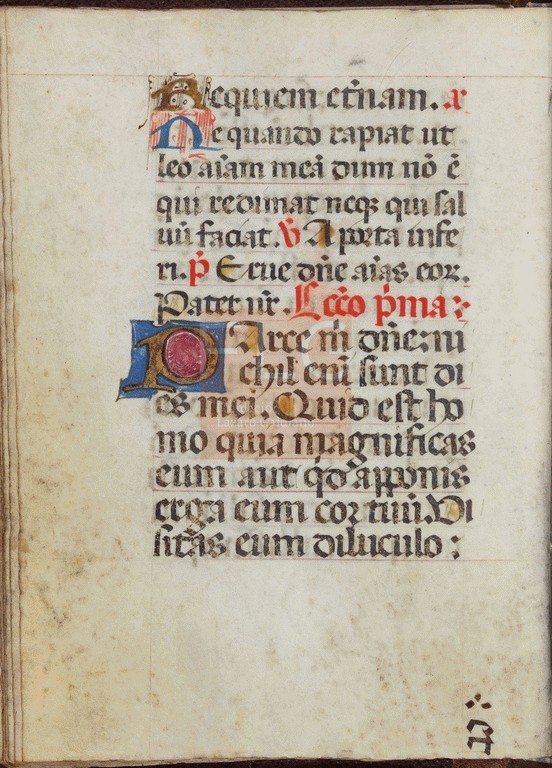 Requiem et̃nam. a
Ne quando rapiat ut
leo aĩam meã dum nõ ẽ
qui redimat neqꝫ qui sal
uũ faciat. ṽ A porta infe
ri. p̃ Erue dñe aĩas eoꝝ.
Pater nr̃. Lcc̃o p̃ma :
PArce m̃ dñe: ni
chil enĩ sunt di
es mei. Quid est ho
mo quia magnificas
eum aut qd̃ apponis
erga eum cor tuũ. Vi
sitãs eum diluculo :